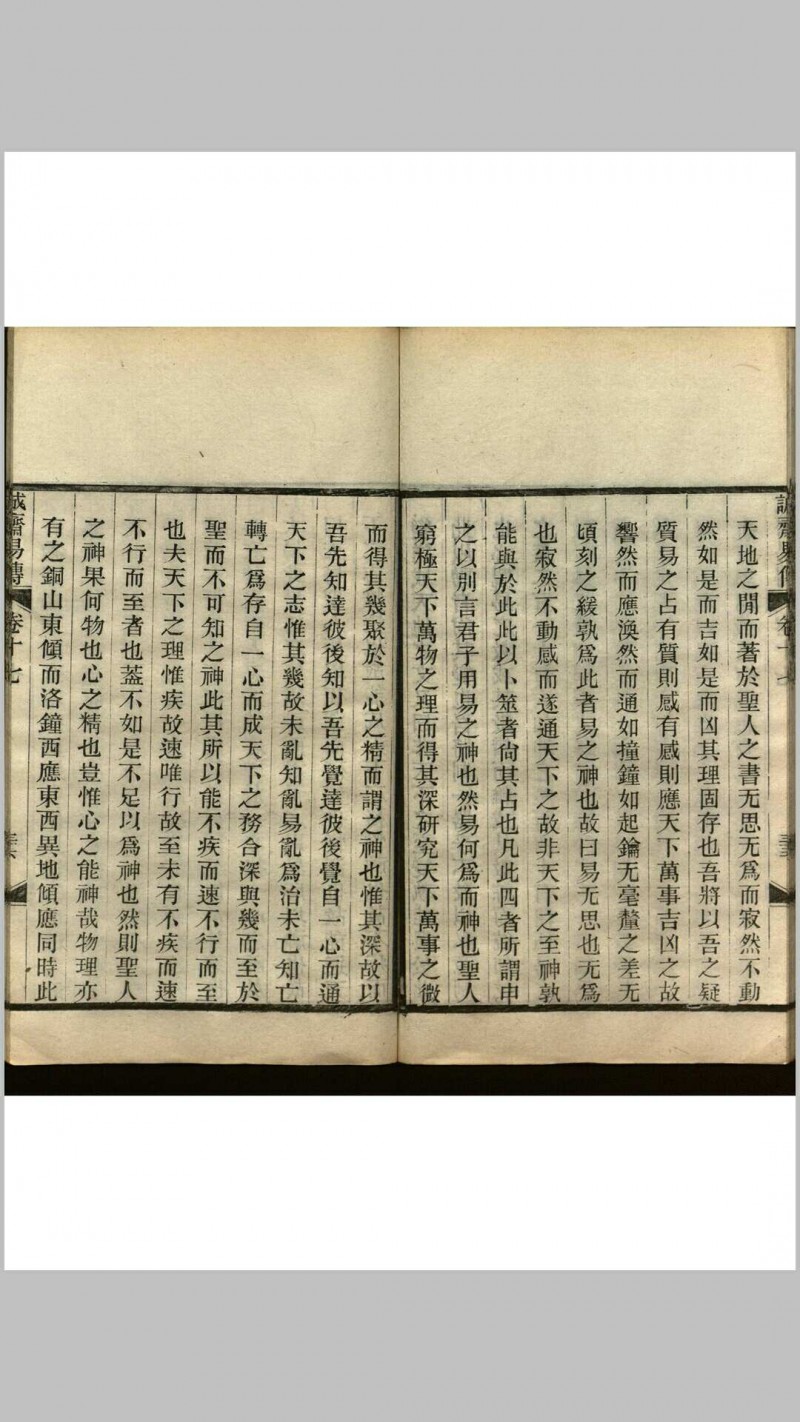 天地之閒而著於聖人之書无思无爲而寂然不動
然如是而吉如是而凶其理固存也吾將以吾之疑
質易之占有質則感有感則應天下萬事吉凶之故
響然而應渙然而通如撞鐘如起鑰无毫釐之差无
頃刻之緩孰爲此者易之神也故曰易无思也无爲
也寂然不動感而遂通天下之故非天下之至神孰
能與於此此以卜筮者尙其占也凡此四者所謂申
之以別言君子用易之神也然易何爲而神也聖人
窮極天下萬物之理而得其深硏究天下萬事之微
而得其幾聚於一心之精而謂之神也惟其深故以
吾先知達彼後知以吾先覺達彼後覺自一心而通
天下之志惟其幾故未亂知亂易亂爲治未亡知亡
轉亡爲存自一心而成天下之務合深與幾而至於
聖而不可知之神此其所以能不疾而速不行而至
也夫天下之理惟疾故速唯行故至未有不疾而速
不行而至者也蓋不如是不足以爲神也然則聖人
之神果何物也心之精也豈惟心之能神哉物理亦
有之銅山東傾而洛鐘西應東西異地傾應同時此
誠齋易傳 卷十七